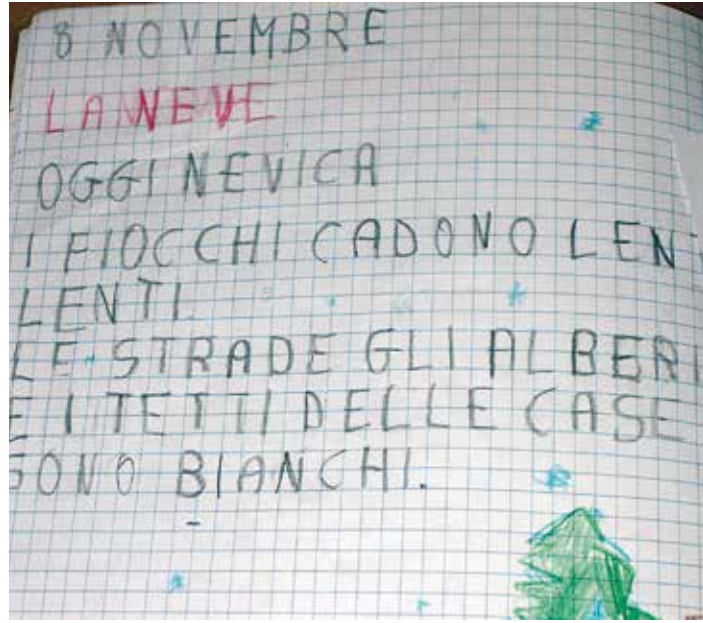 8 NOVEMBRE
LA NEVE
OGGI NEVICA
I FIOCCHI CADONO LEN
LENTI.
LE STRADE GLI ALBERI
E I TETTI DELLE CASE
SONO BIANCHI.